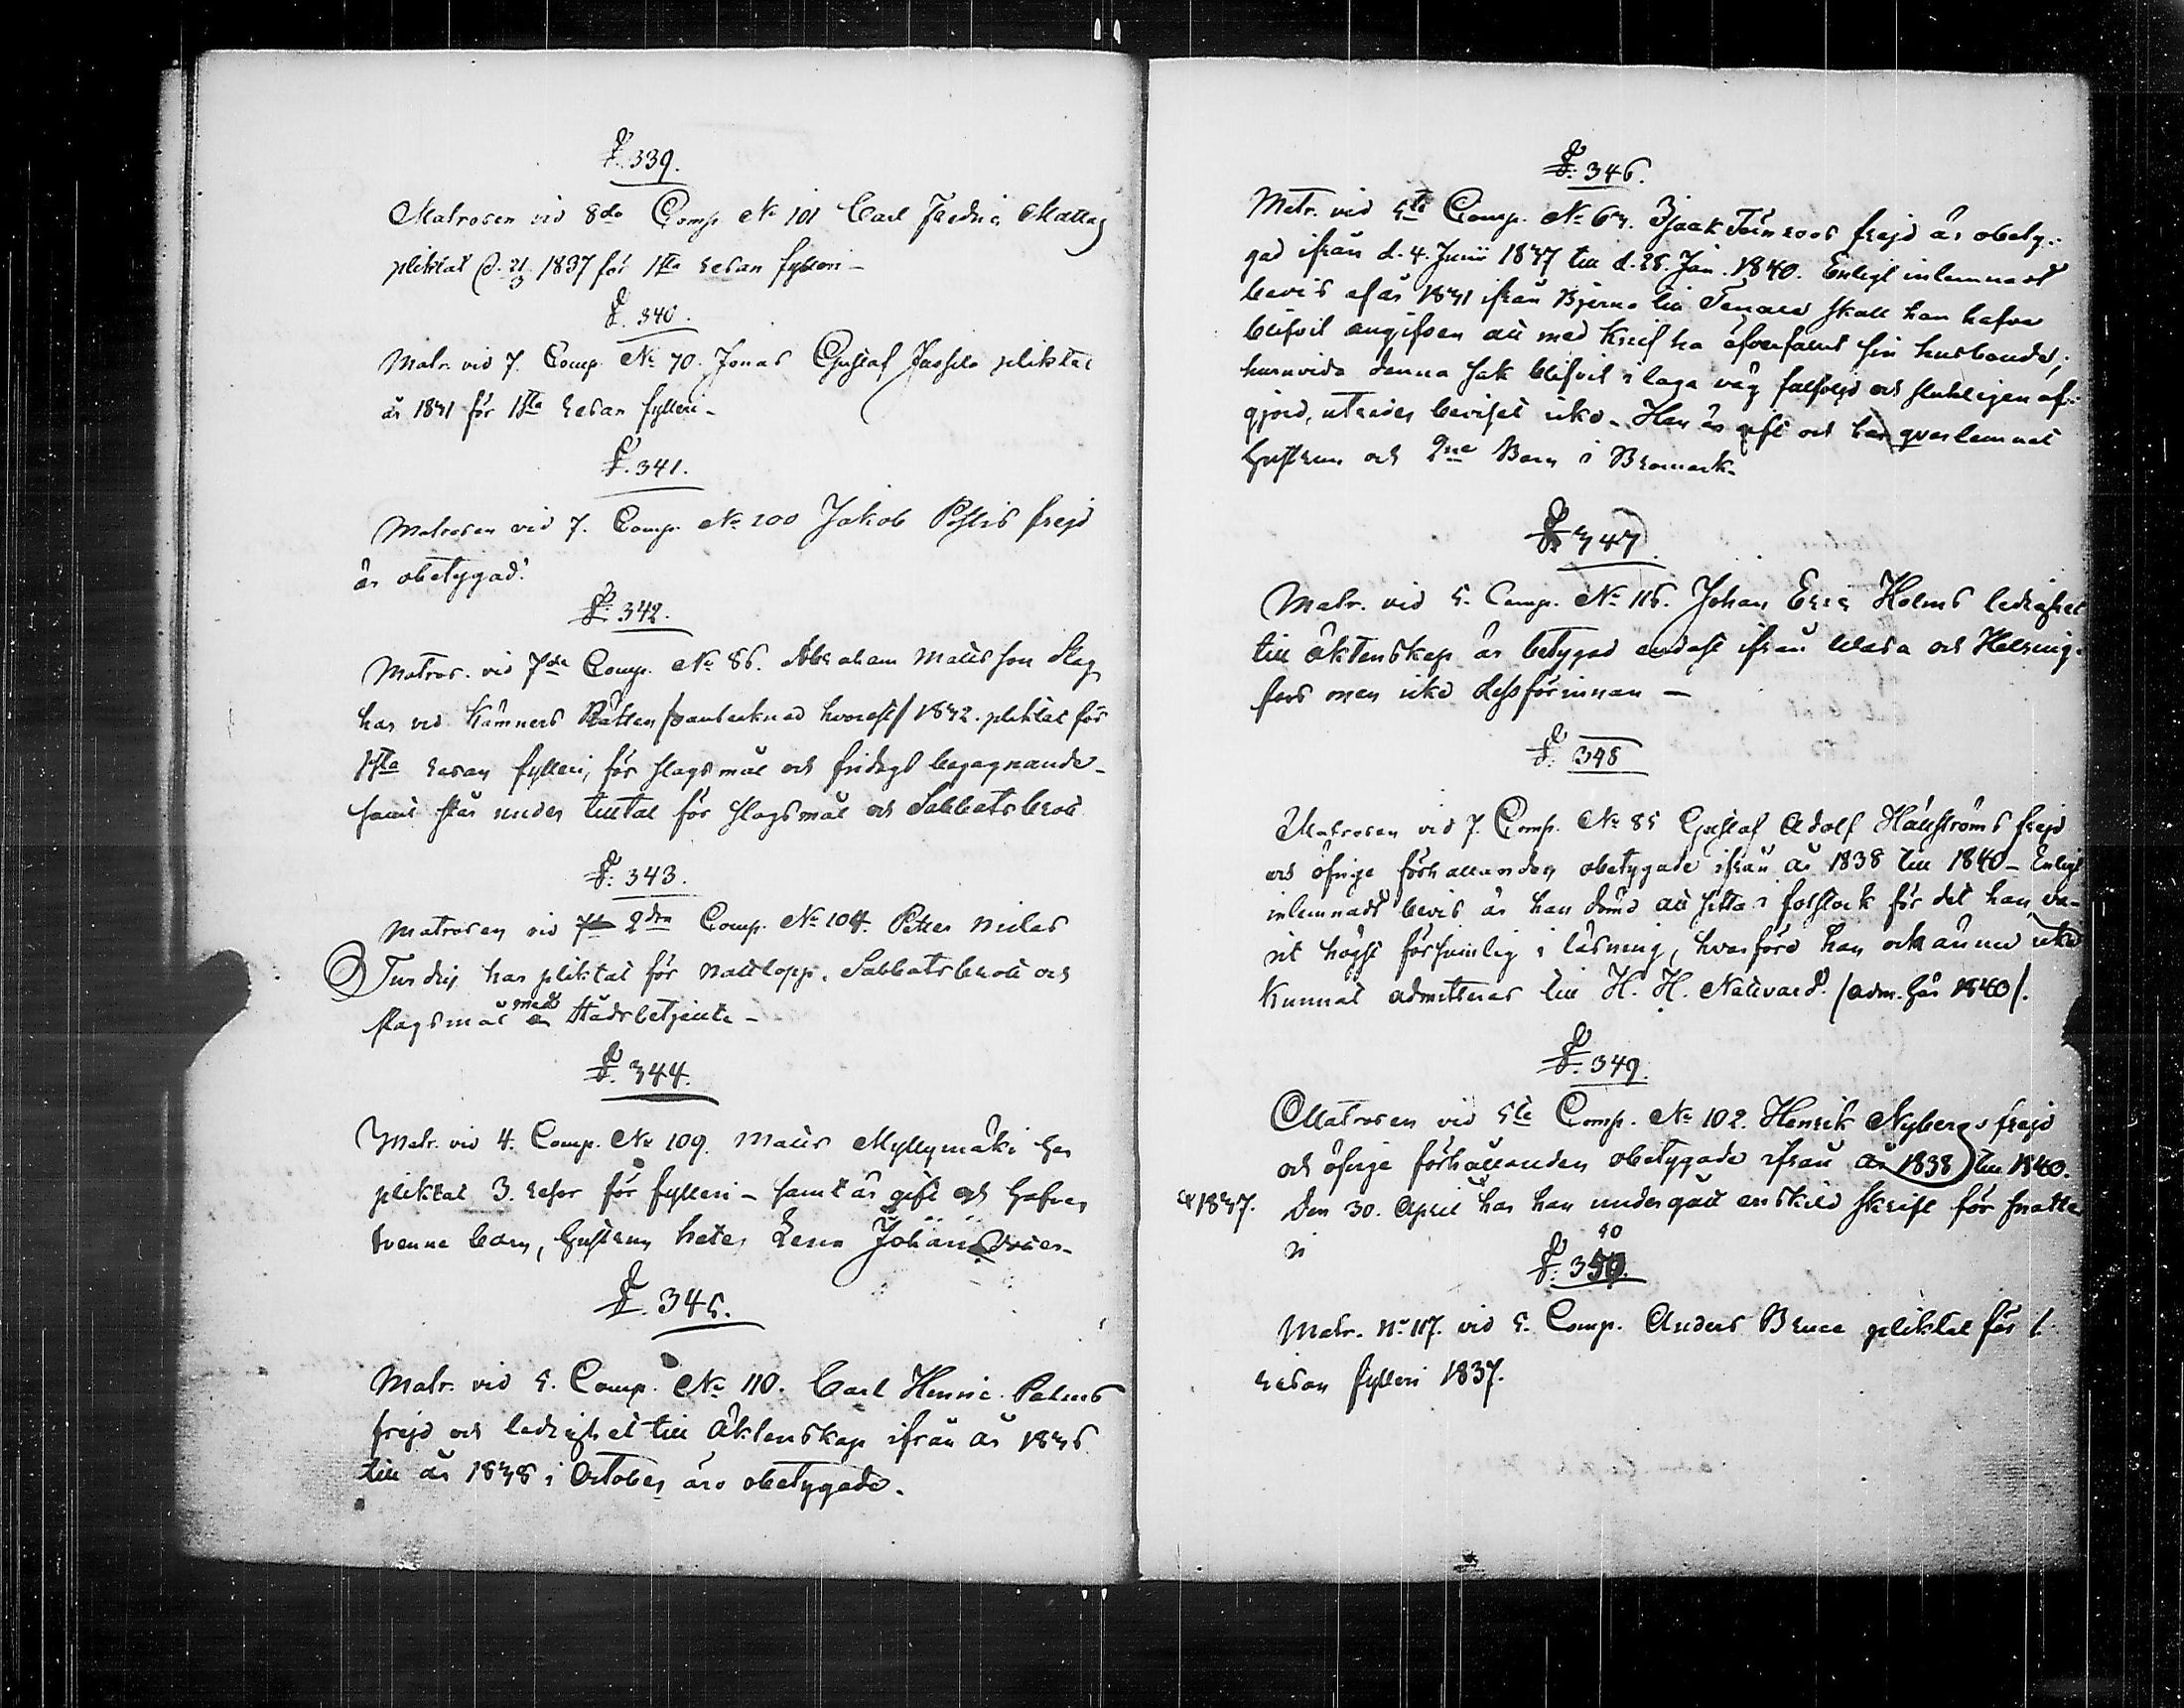 §. 339.
Matrosen vid 8de Comp. No 101 Carl Fredric
pliktat d. 21/3 1837 för 1sta resan fylleri –
§. 340.
Matr. vid 7. Comp. No 70. Jonas Gustaf pliktat
år 1831 för 1sta resan fylleri –
§. 341.
Matrosen vid 7. Comp. No 100 Jakob frejd
är obetygad.
§. 342.
Matros. vid 7de Comp. No 86. Abraham Matts son
har vid Kämners Rätten 1832. pliktat för
1sta resan fylleri, för slagsmål och begagnande –
samt står under tilltal för slagsmål och Sabbatsbrott
§. 343.
Matrosen vid 2dra Comp. No 104. Petter Niclas
har pliktat för nattlopp, Sabbatsbrott och
slagsmål med Stadsbetjente –
§. 344.
Matr. vid 4. Comp. No 109. Matts Myllymäki har
pliktat 3. resor för fylleri – samt är gift och hafver
tvenne barn, hustrun heter Lena Johansdotter –
§. 345.
Matr. vid 5. Comp. No 110. Carl Henric Palms
frejd och ledighet till äktenskap ifrån år 1836
till år 1838 i October äro obetygade.
§. 346.
Matr. vid 5te Comp. No 63. Isaak frejd är obety-
gad ifrån d. 4. Junii 1837 till d. 28. Jan. 1840. Enligt inlemnadt
bevis af år 1831 ifrån Bjerno till Tenala skall han hafva
blifvit angifven att med knif ha öfverfallit sin husbonde;
huruvida denna sak blifvit i laga väg fullföljd och slutligen af-
gjord, utvisar beviset icke. Han är gift och har qvarlemnat
hustrun och 2ne Barn i Bromark.
§. 347.
Matr. vid 5. Comp. No 116. Johan Eric Holms ledighet
till äktenskap är betygad endast ifrån Wasa och Helsing-
fors men icke dessförinnan –
§. 348
Matrosen vid 7. Comp. No 85 Gustaf Adolf Hällströms frejd
och öfrige förhållanden obetygade ifrån år 1838 till 1840 – Enligt
inlemnadt bevis är han dömd att sitta i för det han va-
rit högst försumlig i läsning, hvarföre han ock ännu icke
kunnat admitteras till H. H. Nattvard. /adm. här 1840/.
§. 349.
Matrosen vid 5te Comp. No 102. Henrik Nybergs frejd
och öfrige förhållanden obetygade ifrån år 1838 till 1840.
1837. Den 30. April har han undergått enskild skrift för snatte
ri
50
§. 350.
Matr. No 117. vid 5. Comp. Anders Bruce pliktat för 1.
resan fylleri 1837.